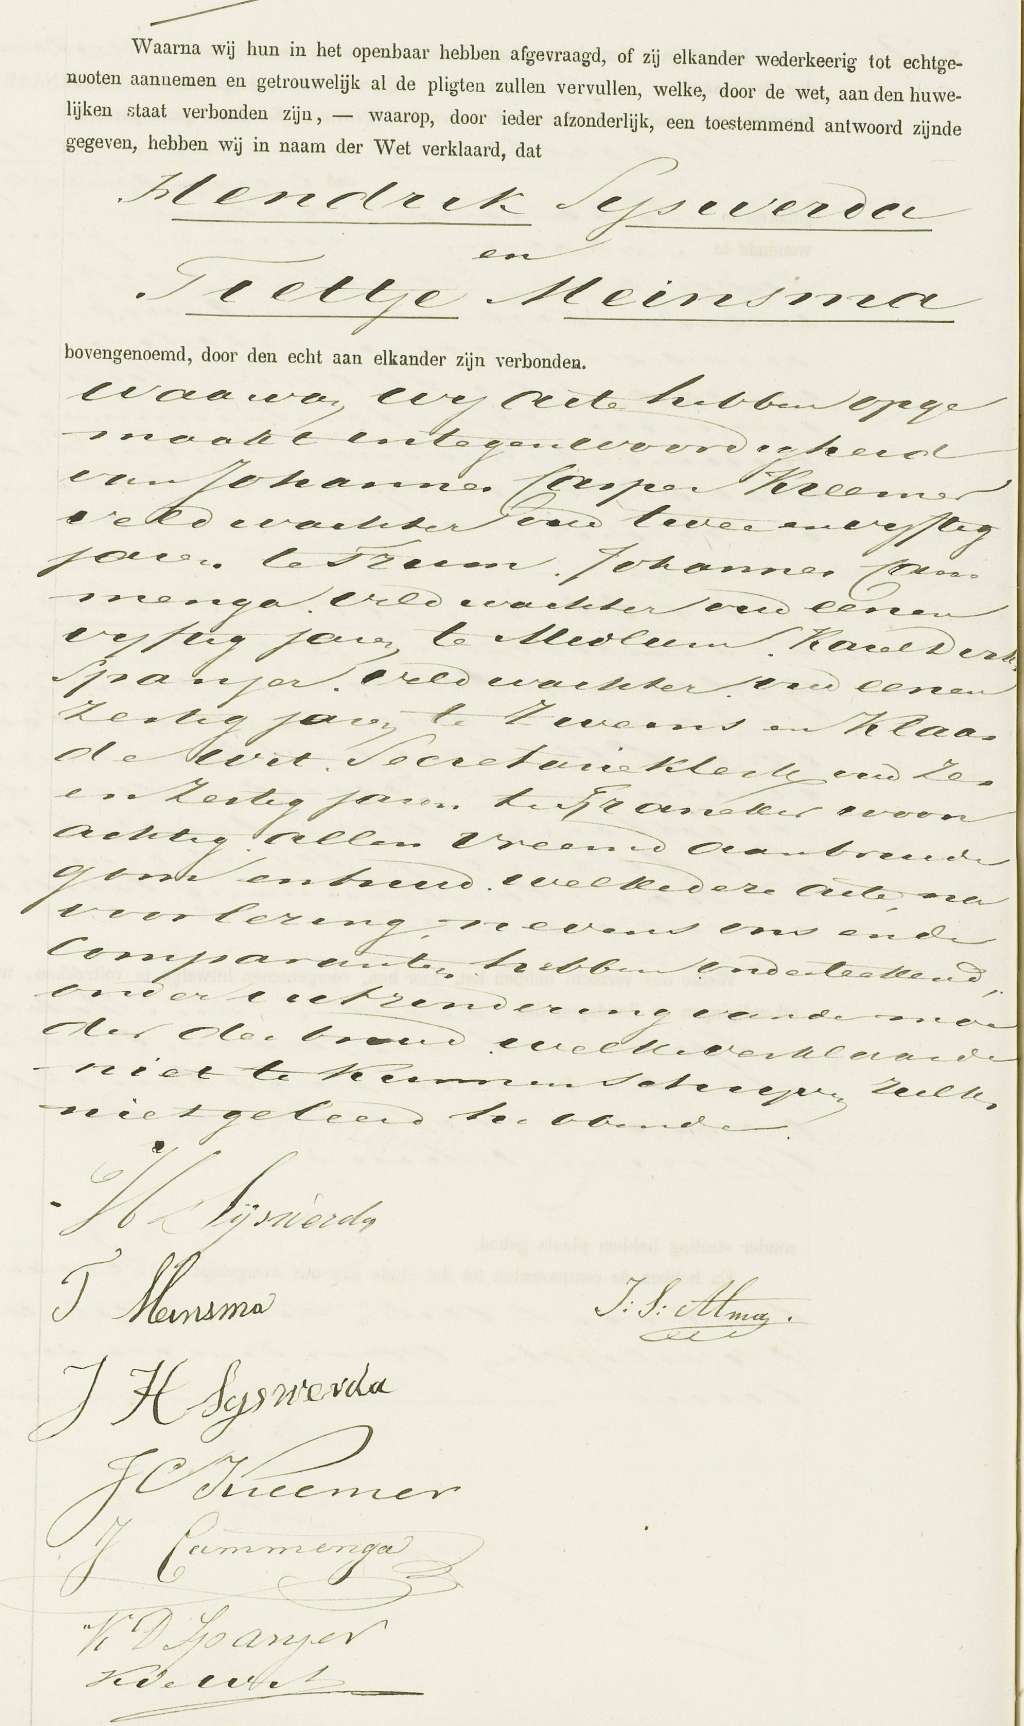 Waarna wij hun in het openbaar hebben afgevraagd, of zij elkander wederkeerig tot echtge-
nooten aannemen en getrouwelijk al de pligten zullen vervullen, welke, door de wet, aan den huwe-
lijken staat verbonden zijn, — waarop, door ieder afzonderlijk, een toestemmend antwoord zijnde
gegeven, hebben wij in naam der Wet verklaard, dat
Hendrik Sijswerda
en
Tjettje Meinsma
bovengenoemd, door den echt aan elkander zijn verbonden.
Waarvan wij acte hebben opge
maakt in tegenwoordigheid
van Johannes Casper Kreemer
veldwachter oud twee en vijftig
jaren te Tzum. Johannes Cam
menga. veldwachter oud eenen
vijftig jaren te Midlum. Karel Derk
Spanjer. veldwachter. oud eenen
zestig jaren te Zweins en Klaas
de Wit. Secretarieklerk oud zes
en zestig jaren te Franeker woon
achtig. allen vreemd aan bruide
gom en bruid. welke deze acte, na
voorlezing, nevens ons en de
comparanten hebben onderteekend,
onder uitzondering van de moe
der der bruid welke verklaarde
niet te kunnen schrijven zulks
niet geleerd hebbende.
H Sijswerda
T Meinsma
J: S: Alma.
J H Sijswerda
J C Kreemer
J Cammenga
K D Spanjer
K de Wit